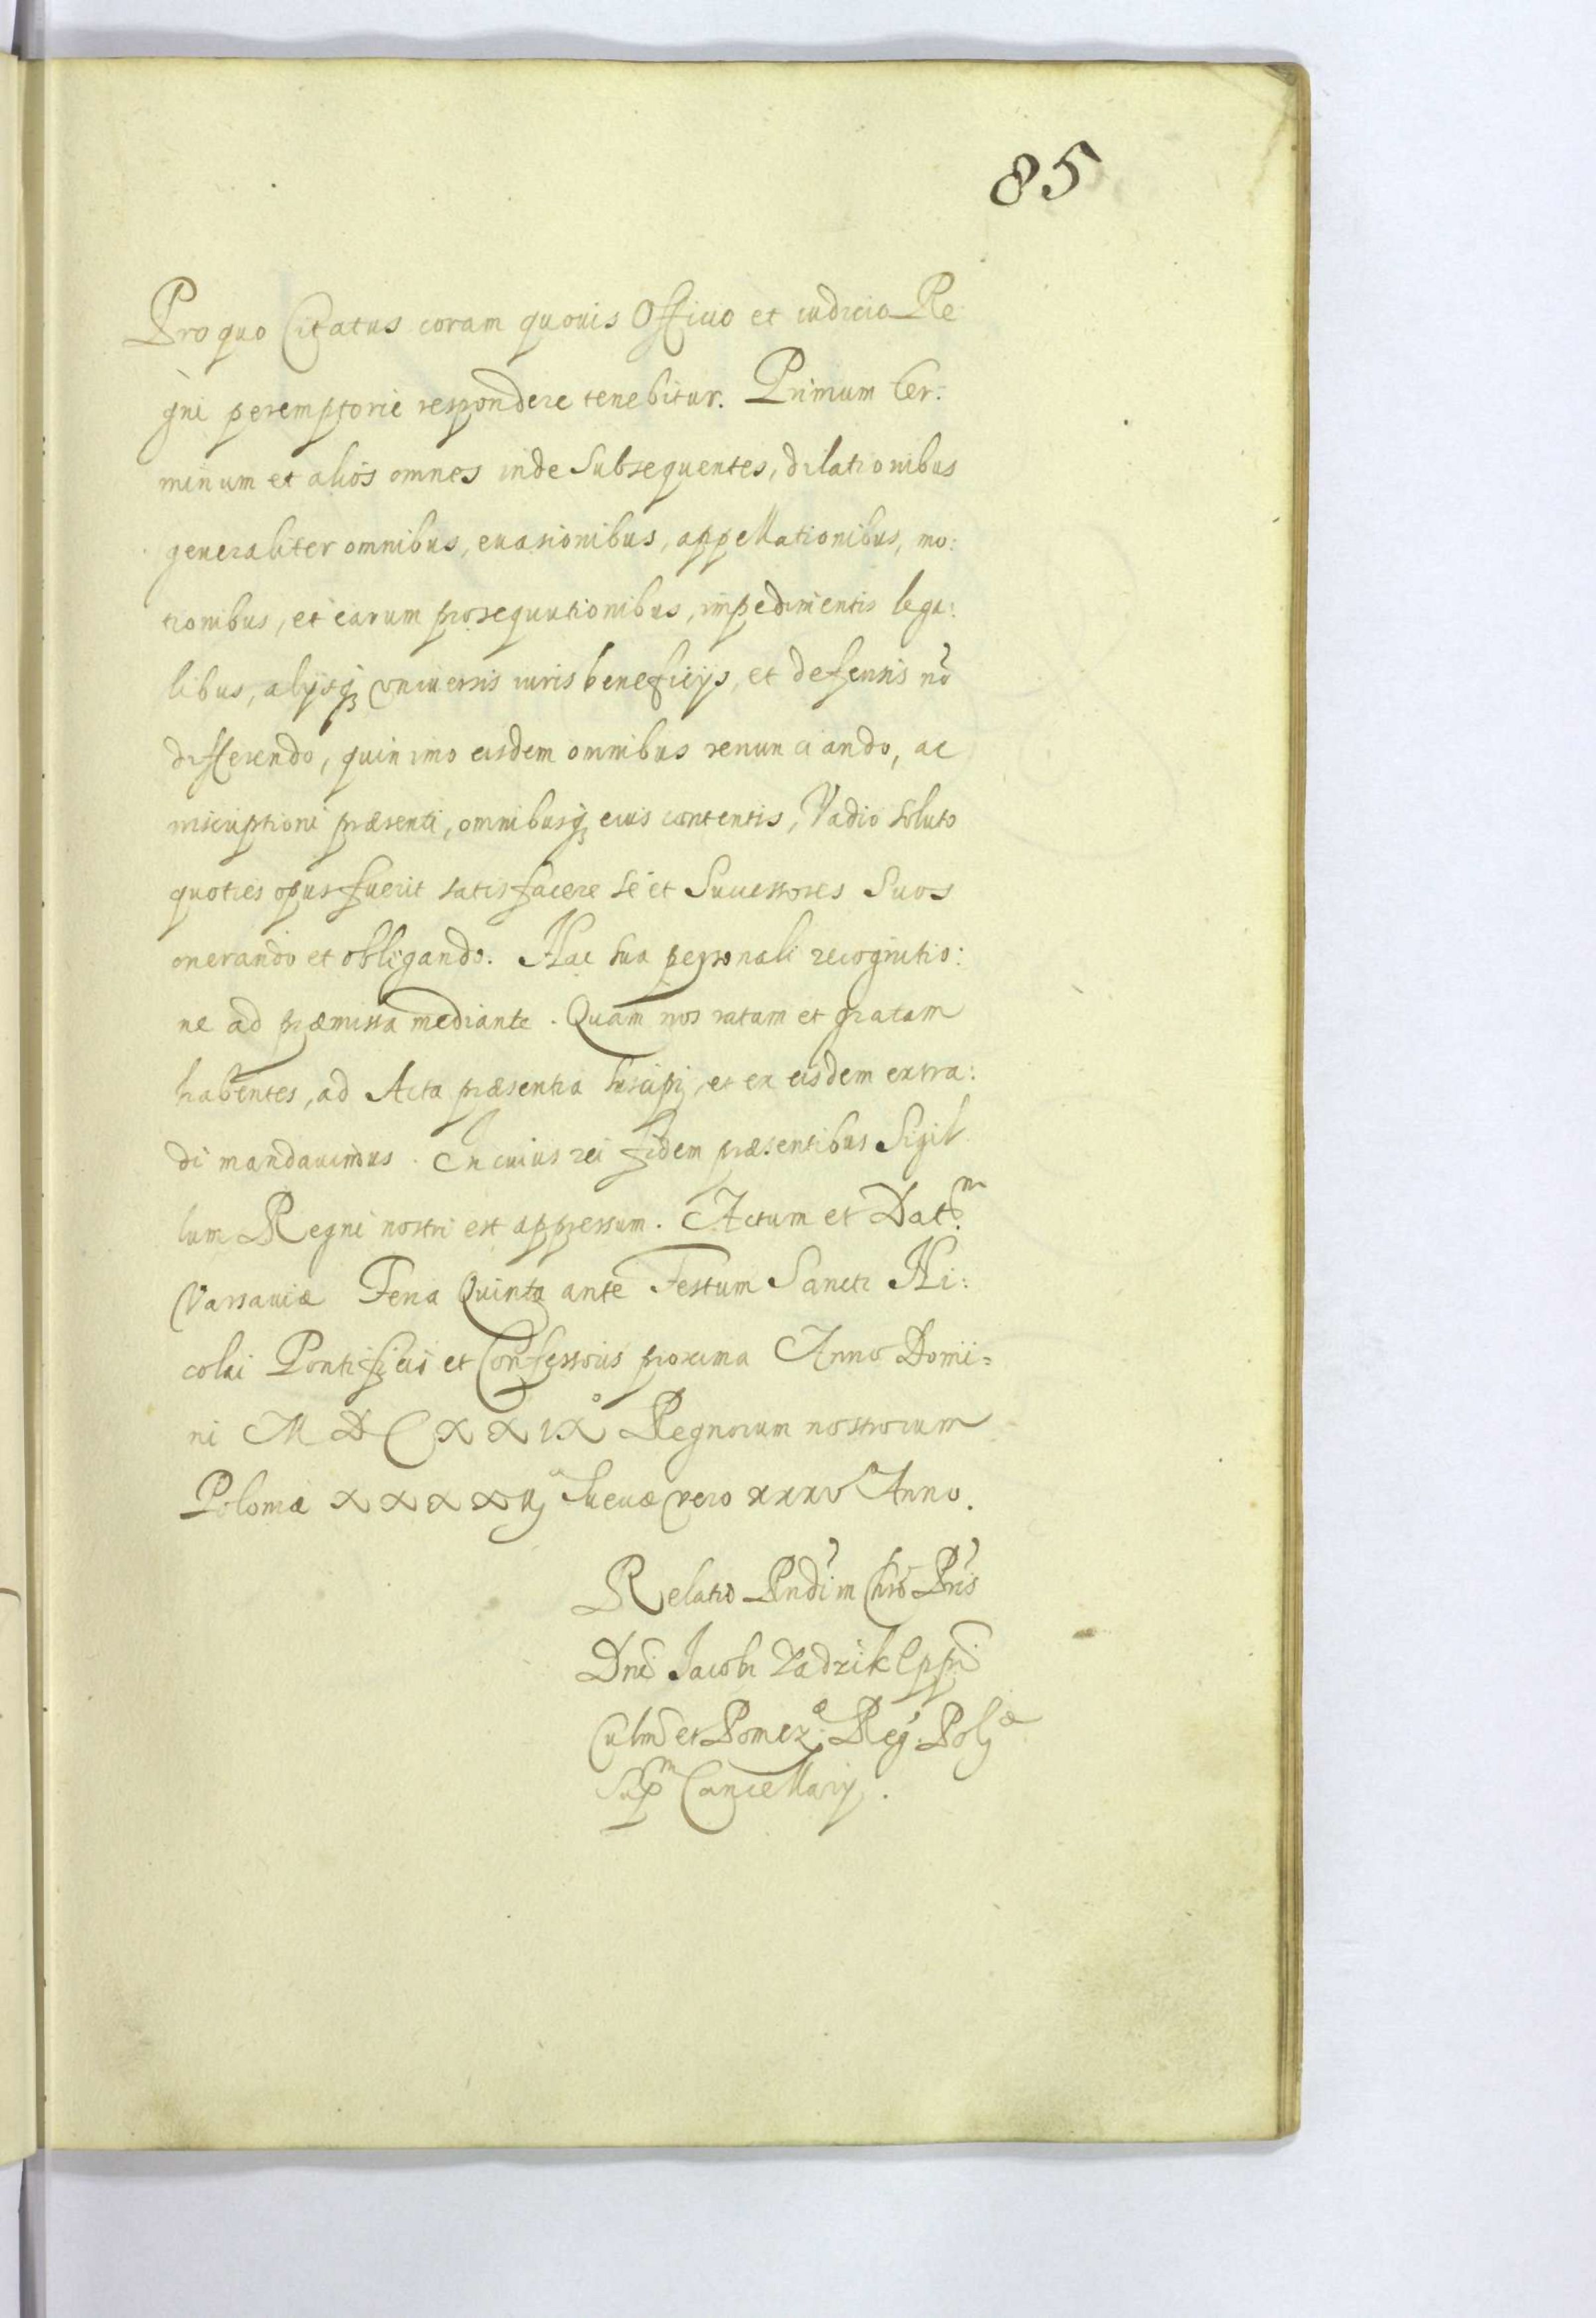 85
Pro quo Citatus coram quouis Officio et iudicio Re
gni peremptorie respondere tenebitur. Primum ter:
minum et alios omnes inde Subsequentes, dilationibus
generaliter omnibus, euasionibus, appellationibus, mo:
tionibus, et earum prosequutionibus, impedimentis lega:
libus, alijsq3 vniuersis iuris beneficijs, et defensis nō
differendo, quin imo eisdem omnibus renunciando, ac
inscriptioni præsenti, omnibusq3 eius contentis, Vadio soluto
quoties opus fuerit satisfacere se et Successores Suos
onerando et obligando. Hac sua personali recognitio:
ne ad præmissa mediante. Quam nos ratam et gratam
habentes, ad Acta præsentia suscipi, et ex eisdem extra:
di mandauimus. In cuius rei fidem præsentibus Sigil
lum Regni nostri est appressum. Actum et Dat.m
Varsauiæ Feria Quinta ante Festum Sancti Ni:
colai Pontificis et Confessoris proxima Anno Domi=
ni MDCXXIXo Regnorum nostrorum
Poloniæ XXXXIJo Sueciæ vero xxxvo Anno.
Relatio Rndi in Chro Pris
Dni Jacobi Zadzik Eppi
Culmen et Pomezæ: Reg: Poljæ
Supm Cancellarij.